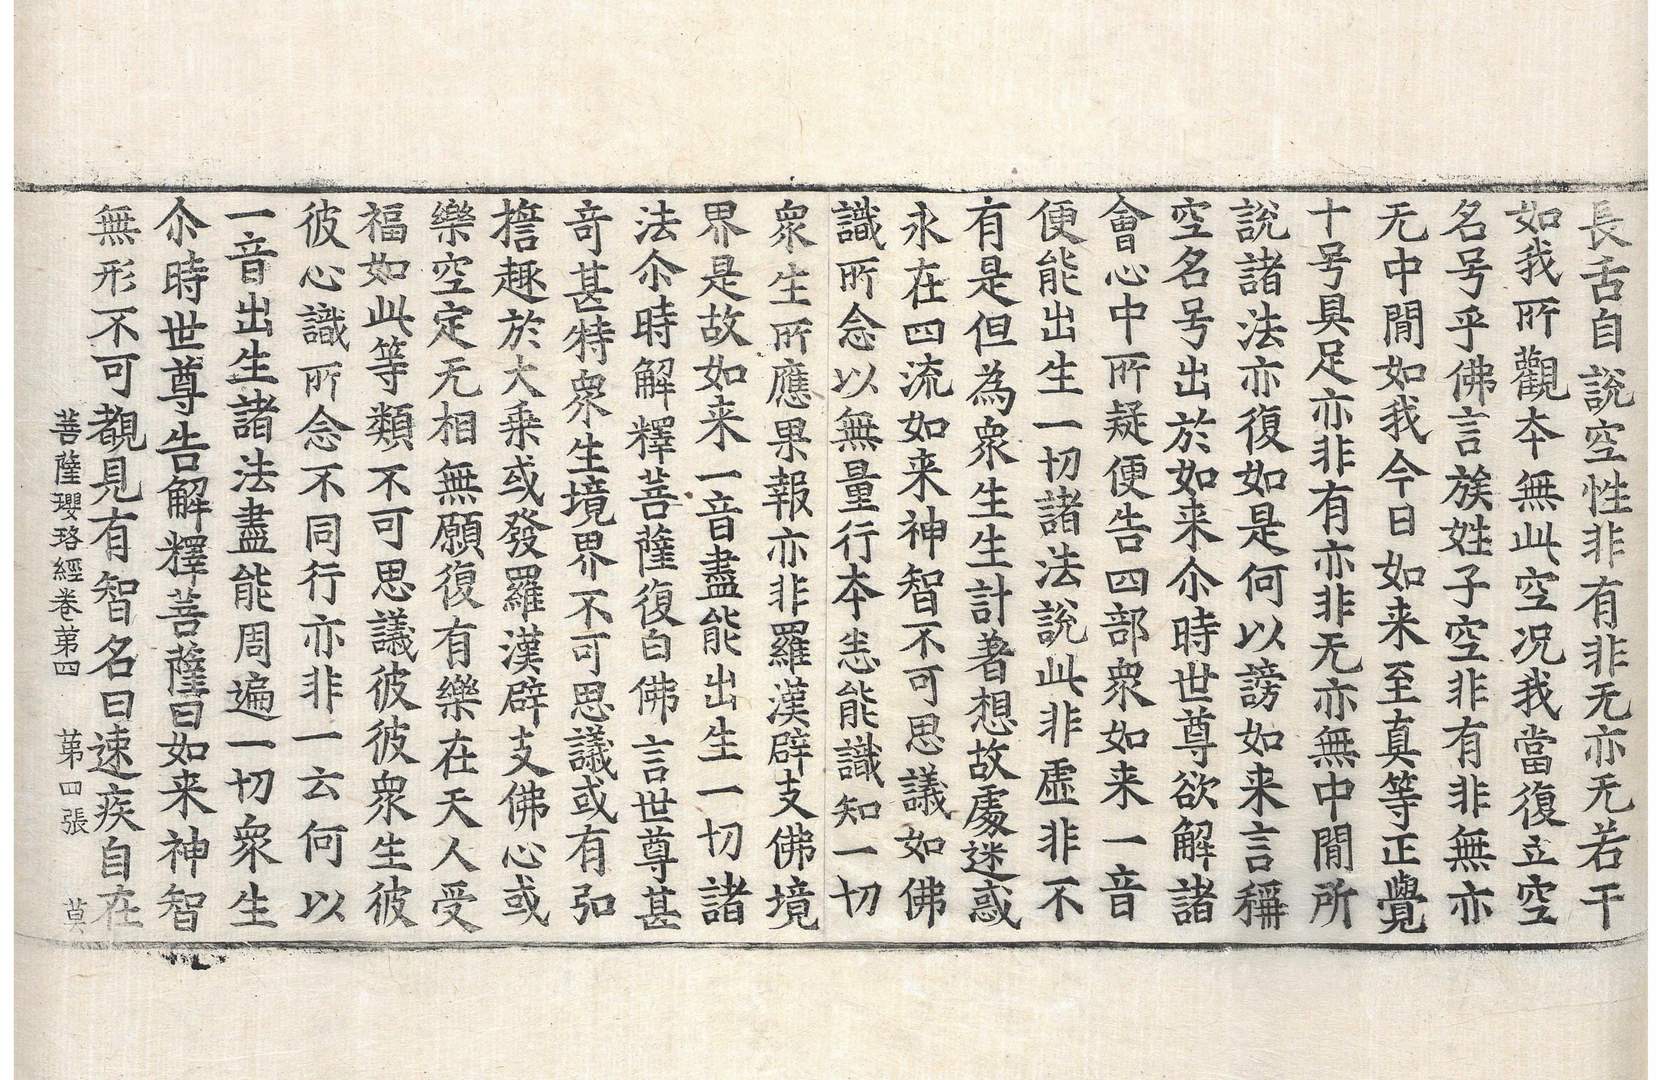 長舌自說空性非有非无亦无若干
如我所觀本無此空况我當復立空
名号乎佛言族姓子空非有非無亦
无中間如我今日如来至真等正覺
十号具足亦非有亦非无亦無中間所
說諸法亦復如是何以謗如来言稱
空名号出於如来尒時世尊欲解諸
會心中所疑便告四部衆如来一音
便能出生一切諸法說此非虛非不
有是但為衆生生計著想故處迷惑
永在四流如来神智不可思議如佛
識所念以無量行本恙能識知一切
衆生所應果報亦非羅漢辟支佛境
界是故如来一音盡能出生一切諸
法尒時解釋菩薩復白佛言世尊甚
奇甚特衆生境界不可思議或有弘
誓趣於大乘或發羅漢辟支佛心或
樂空定无相無願復有樂在天人受
福如此等類不可思議彼彼衆生彼
彼心識所念不同行亦非一云何以
一音出生諸法盡能周遍一切衆生
尒時世尊告解釋菩薩曰如来神智
無形不可覩見有智名曰速疾自在
菩薩瓔珞經卷第四 第四張 莫